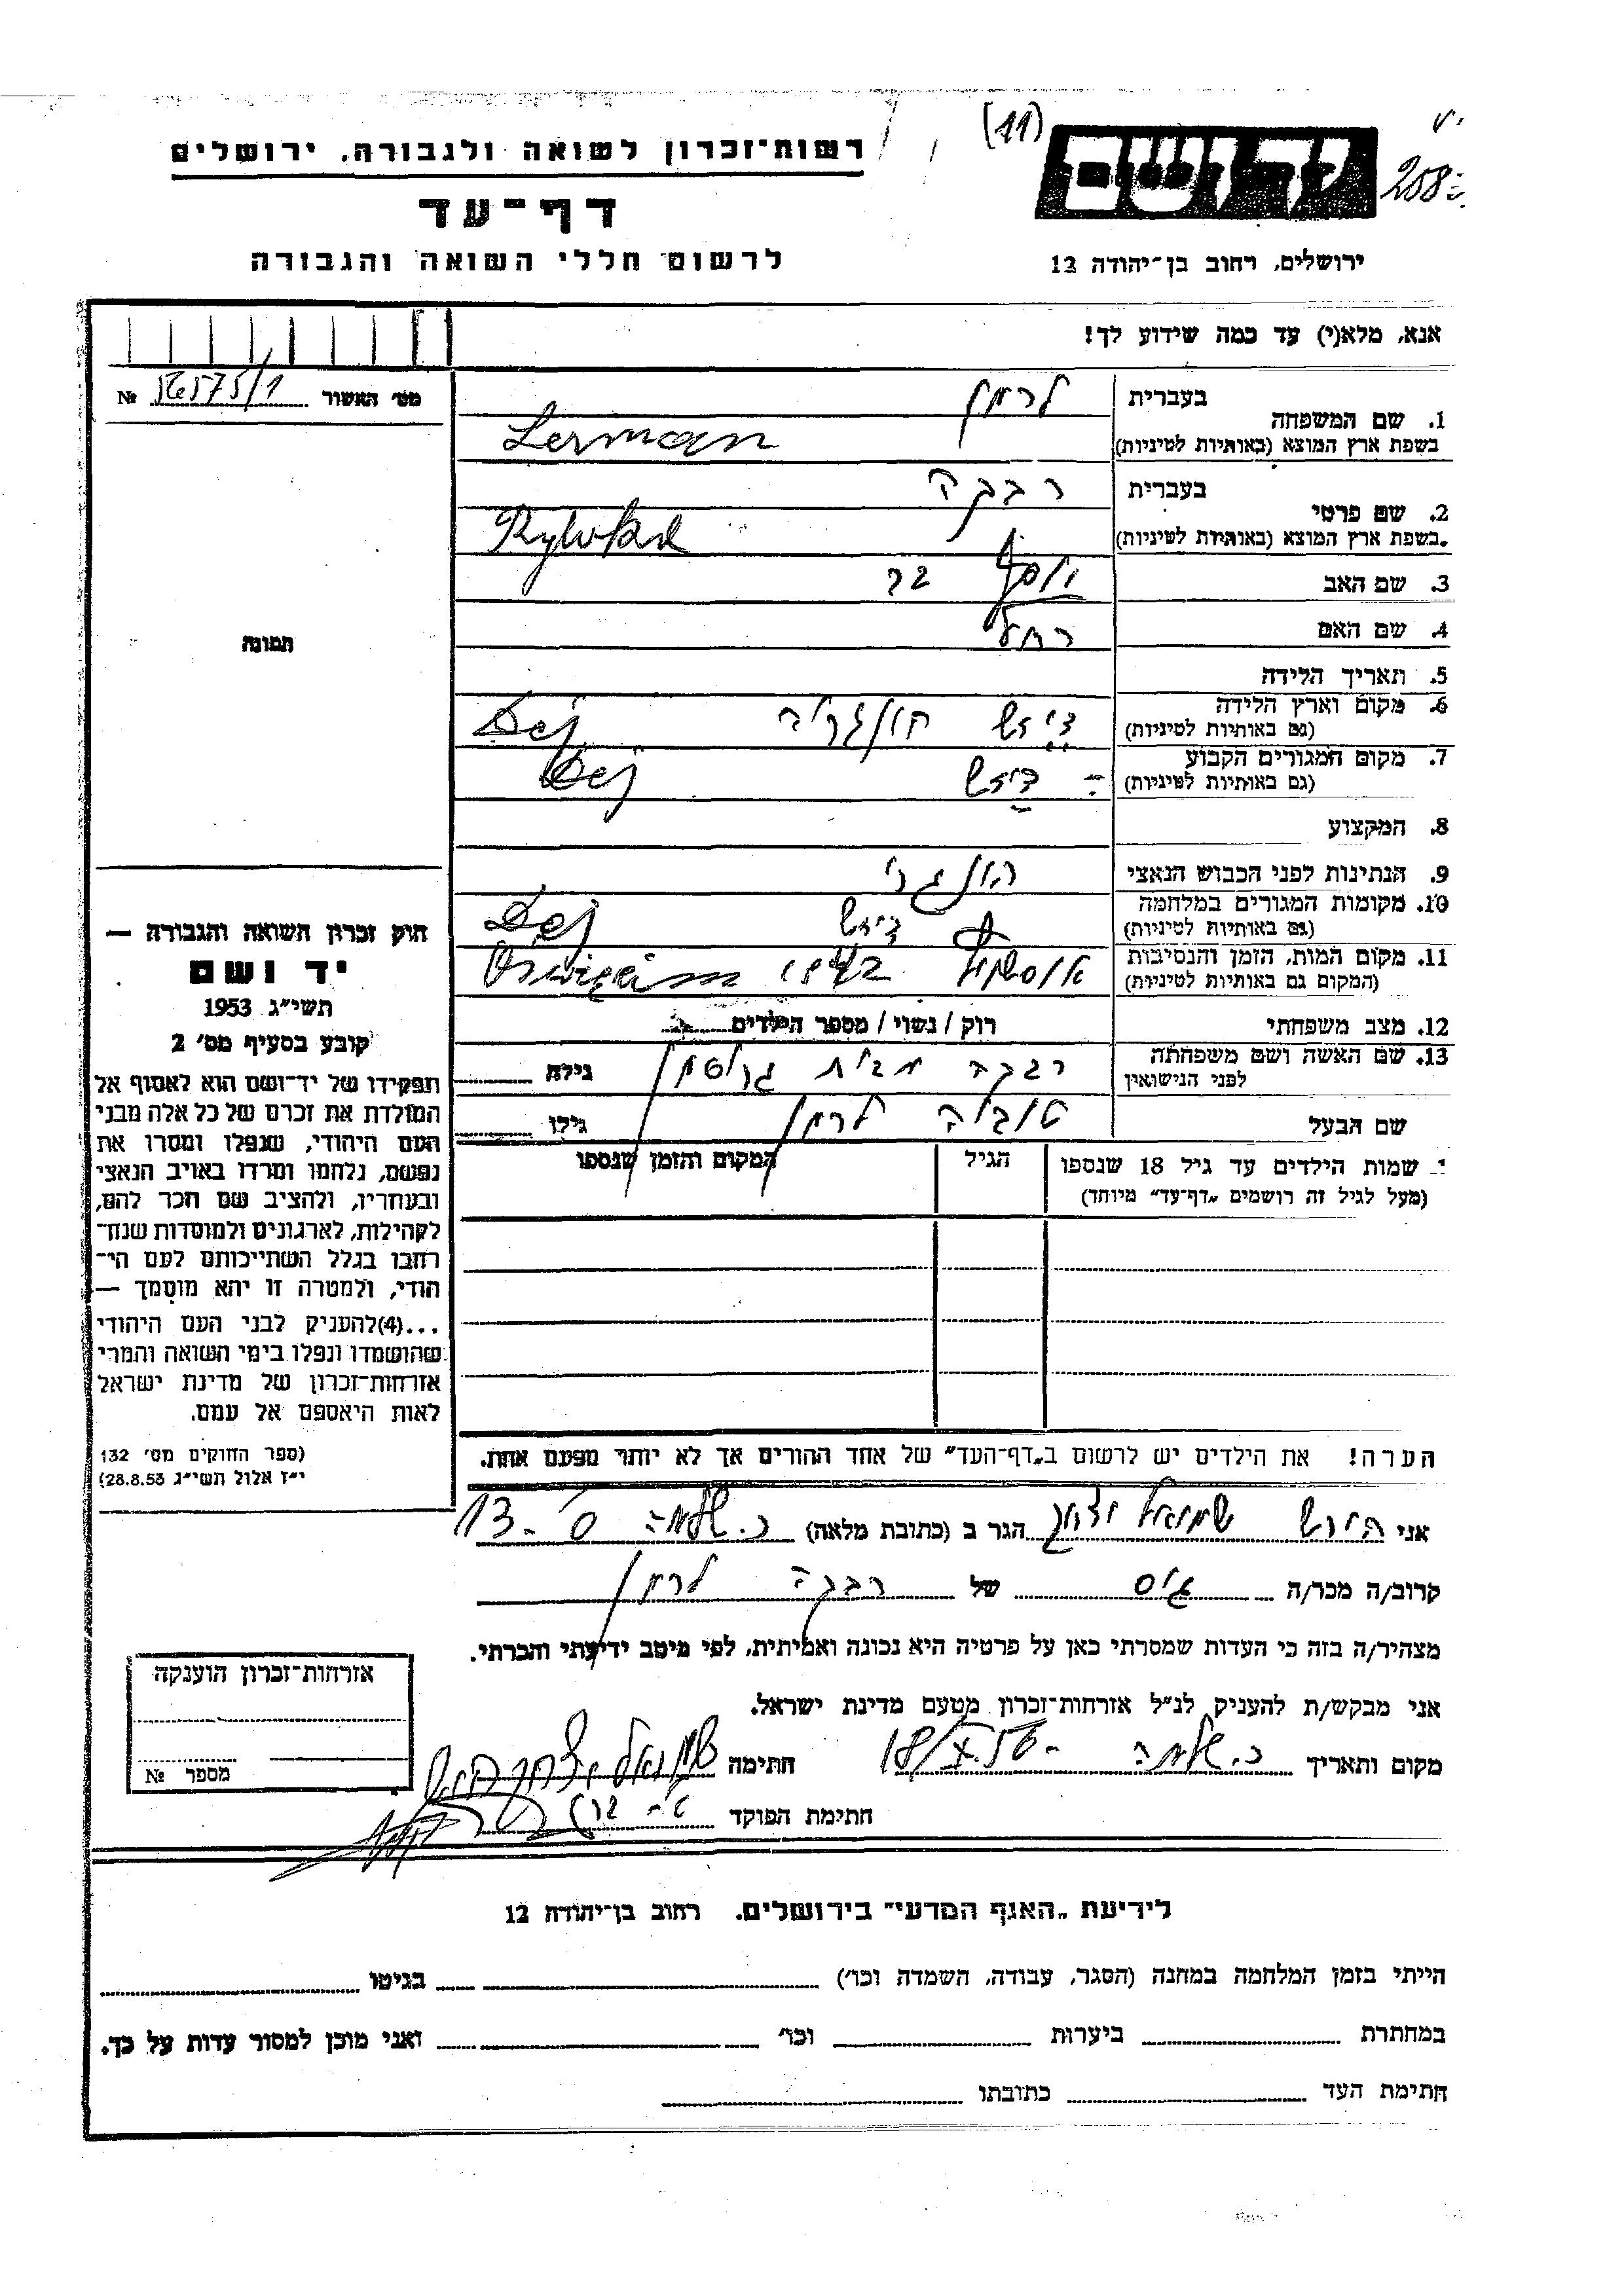 (11)
יד ושם
208
רשות-זכרון לשואה ולגבורה, ירושלים
דף-עד
לרשום חללי השואה והגבורה
ירושלים, רחוב בן-יהודה 12
אנא, מלא(י) עד כמה שידוע לך!
מס' האשור № 56575/1
1. שם המשפחה בעברית לרמן
בשפת ארץ המוצא (באותיות לטיניות) Lerman
2. שם פרטי בעברית רבקה
בשפת ארץ המוצא (באותיות לטיניות) Rywka
3. שם האב יוסף
4. שם האם רחל
5. תאריך הלידה
6. מקום וארץ הלידה (גם באותיות לטיניות) דיזש הונגריה Dej
7. מקום המגורים הקבוע (גם באותיות לטיניות) דיזש Dej
8. המקצוע
9. הנתינות לפני הכבוש הנאצי הונגרי
10. מקומות המגורים במלחמה (גם באותיות לטיניות) דיזש Dej
11. מקום המות, הזמן והנסיבות (המקום גם באותיות לטיניות) Oswięcim
12. מצב משפחתי רוק / נשוי / מספר הילדים
13. שם האשה ושם משפחתה לפני הנישואין רבקה מבית גילה
שם הבעל טוביה לרמן גילו
שמות הילדים עד גיל 18 שנספו
(מעל לגיל זה רושמים "דף-עד" מיוחד)
הגיל
המקום והזמן שנספו
הערה! את הילדים יש לרשום ב"דף-העד" של אחד ההורים אך לא יותר מפעם אחת.
תמונה
חוק זכרון השואה והגבורה —
יד ושם
תשי"ג 1953
קובע בסעיף מס' 2
תפקידו של יד-ושם הוא לאסוף אל
המולדת את זכרם של כל אלה מבני
העם היהודי, שנפלו ומסרו את
נפשם, נלחמו ומרדו באויב הנאצי
ובעוזריו, ולהציב שם וזכר להם,
לקהילות, לארגונים ולמוסדות שנח-
רבו בגלל השתייכותם לעם הי-
הודי, ולמטרה זו יהא מוסמך —
...(4) להעניק לבני העם היהודי
שהושמדו ונפלו בימי השואה והמרי
אזרחות-זכרון של מדינת ישראל
לאות היאספם אל עמם.
(ספר החוקים מס' 132
י"ז אלול תשי"ג 28.8.53)
אני הירש שמואל יצחק הגר ב (כתובת מלאה) 13-
קרוב/ה מכר/ה גיס של רבקה לרמן
מצהיר/ה בזה כי העדות שמסרתי כאן על פרטיה היא נכונה ואמיתית, לפי מיטב ידיעתי והכרתי.
אני מבקש/ת להעניק לנ"ל אזרחות-זכרון מטעם מדינת ישראל.
מקום ותאריך 18/X 56 חתימה שמואל יצחק הירש
חתימת הפוקד
אזרחות-זכרון הוענקה
מספר №
לידיעת "האגף המדעי" בירושלים. רחוב בן-יהודה 12
הייתי בזמן המלחמה במחנה (הסגר, עבודה, השמדה וכו') בגיטו
במחתרת ביערות וכו' ואני מוכן למסור עדות על כך.
חתימת העד כתובתו